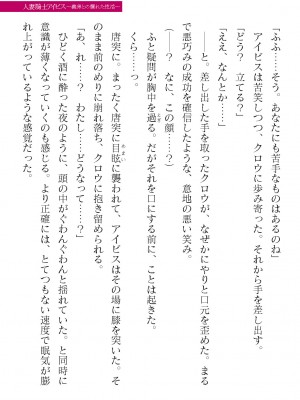 人妻騎士アイビス
「ふふ……そう、あなたにも苦手なものはあるのね」
アイビスは苦笑しつつ、クロウに歩み寄った。それから手を差し出す。
「どう? 立てる?」
「ええ、なんとか……」
――と、差し出した手を取ったクロウが、なぜかにやりと口元を歪めた。まる
で悪巧みの成功を確信したような、意地の悪い笑み。
(――? なに、この顔……?)
ふと疑問が胸中を過る。だがそれを口にする前に、ことは起きた。
くら……っ。
唐突に。まったく唐突に目眩に襲われて、アイビスはその場に膝を突いた。そ
のまま前のめりに崩れ落ち、クロウに抱き留められる。
「あ、れ……? わたし……どうなって……?」
ひどく酒に酔った夜のように、頭の中がぐわんぐわんと揺れていた。と同時に
意識が薄くなっていくのも感じる。より正確には、とてつもない速度で眠気が膨
れ上がっているような感覚だった。